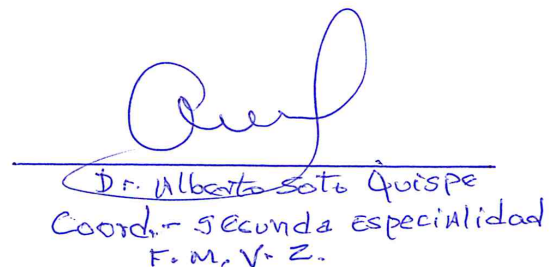 Dr. Alberto Soto Quispe
Coord.- Segunda Especialidad
F. M. V. Z.